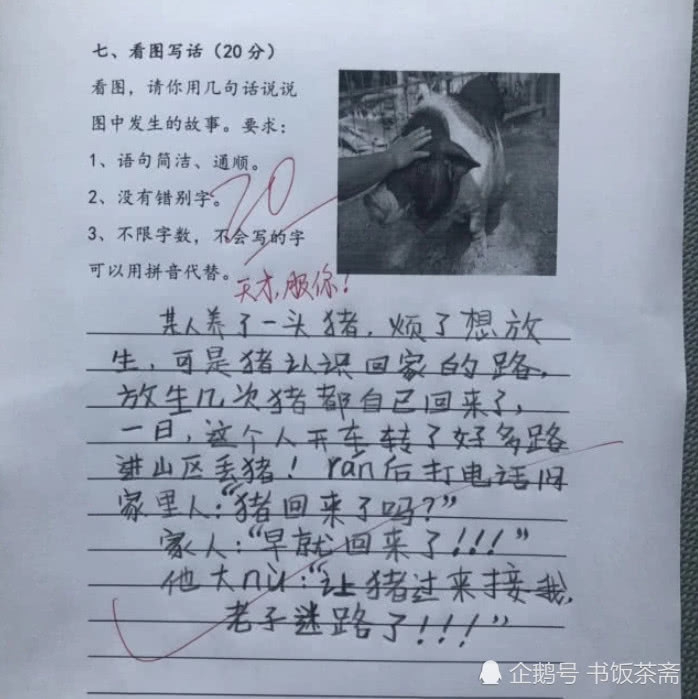 七、看图写话（20分）
看图，请你用几句话说说
图中发生的故事。要求：
1、语句简洁、通顺。
2、没有错别字。
3、不限字数，不会写的字
可以用拼音代替。
20
天才，服你！
某人养了一头猪，烦了想放
生，可是猪认识回家的路，
放生几次猪都自己回来了，
一日，这个人开车转了好多路
进山区丢猪！rán后打电话问
家里人：“猪回来了吗？”
家人：“早就回来了！！！”
他大nù：“让猪过来接我，
老子迷路了！！！”
企鹅号 书饭茶斋